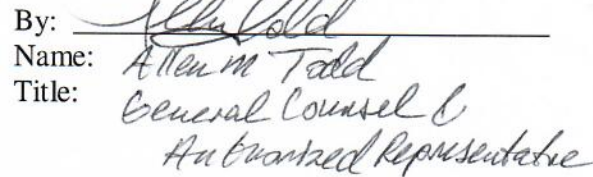 By: Allen Todd
Name: Allen M Todd
Title: General Counsel &
Authorized Representative